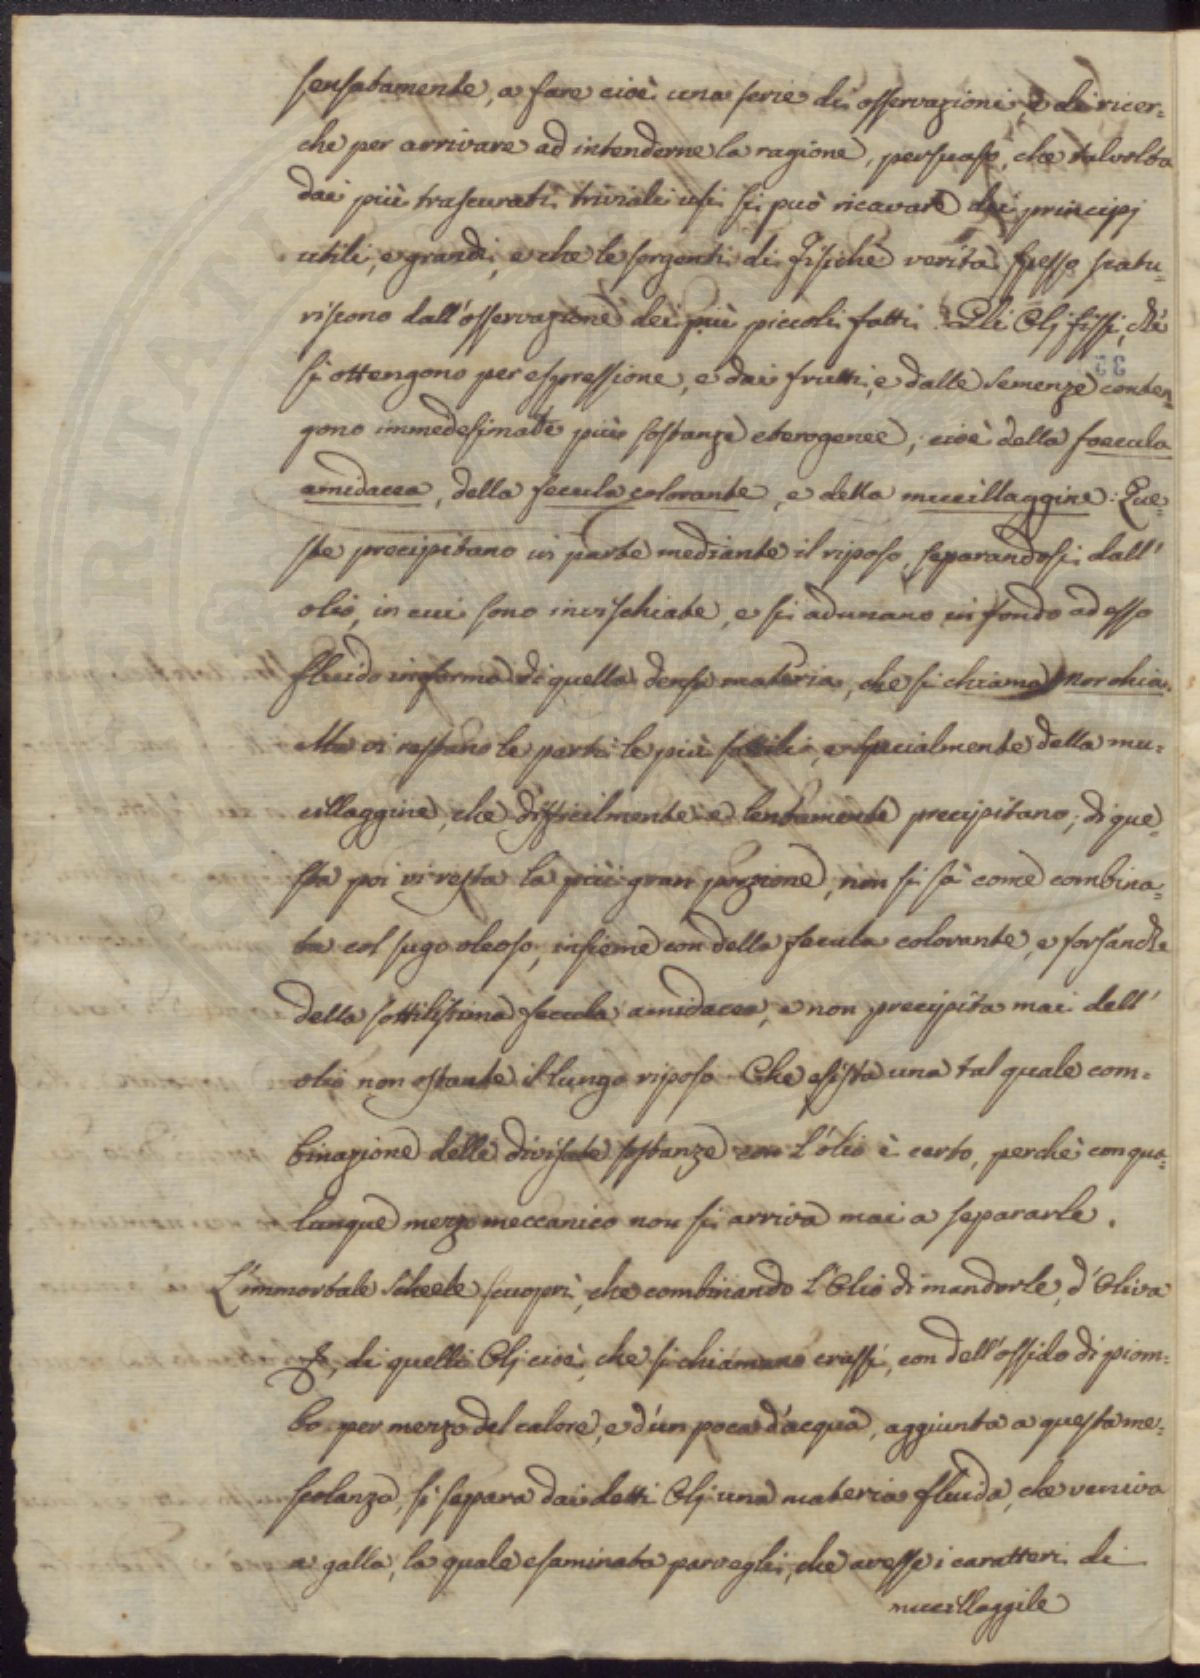 sensatamente, a fare cioè una serie di osservazioni, e di ricer=
che per arrivare ad intenderne la ragione, persuaso, che talvolta
dai più trascurati triviali usi si può ricavare dei principj
utili, e grandi, e che le sorgenti di Fisiche verità spesso scatu=
riscono dall'osservazione dei più piccoli fatti. Gli Olj fissi, che
si ottengono per espressione, e dai frutti, e dalle semenze conten=
gono immedesimate più sostanze eterogenee, cioè della foecula
amidacea, della fecula colorante, e della mucillaggine: Que=
ste precipitano in parte mediante il riposo, separandosi dall'
olio, in cui sono invischiate, e si adunano in fondo ad esso
fluido in forma di quella densa materia, che si chiama Morchia.
Ma vi restano le parti le più sottili, e specialmente della mu=
cillaggine, che difficilmente e lentamente precipitano; di que=
sta poi vi resta la più gran porzione, non si sà come combina=
ta col sugo oleoso, insieme con della fecula colorante, e fors'anche
della sottilissima fecula amidacea, e non precipita mai dell'
olio non ostante il lungo riposo. Che esista una tal quale com=
binazione delle divisate sostanze con l'olio è certo, perchè con qua=
lunque mezzo meccanico non si arriva mai a separarle.
L'immortale Scheele scuoprì, che combinando l'Olio di mandorle, d'Oliva
&, di quelli Olj cioè, che si chiamano crassi, con dell'ossido di piom=
bo per mezzo del calore, e d'un poca d'acqua, aggiunta a questa me=
scolanza, si separa dai detti Olj una materia fluida, che veniva
a galla, la quale esaminata parvegli, che avesse i caratteri di
mucillaggile